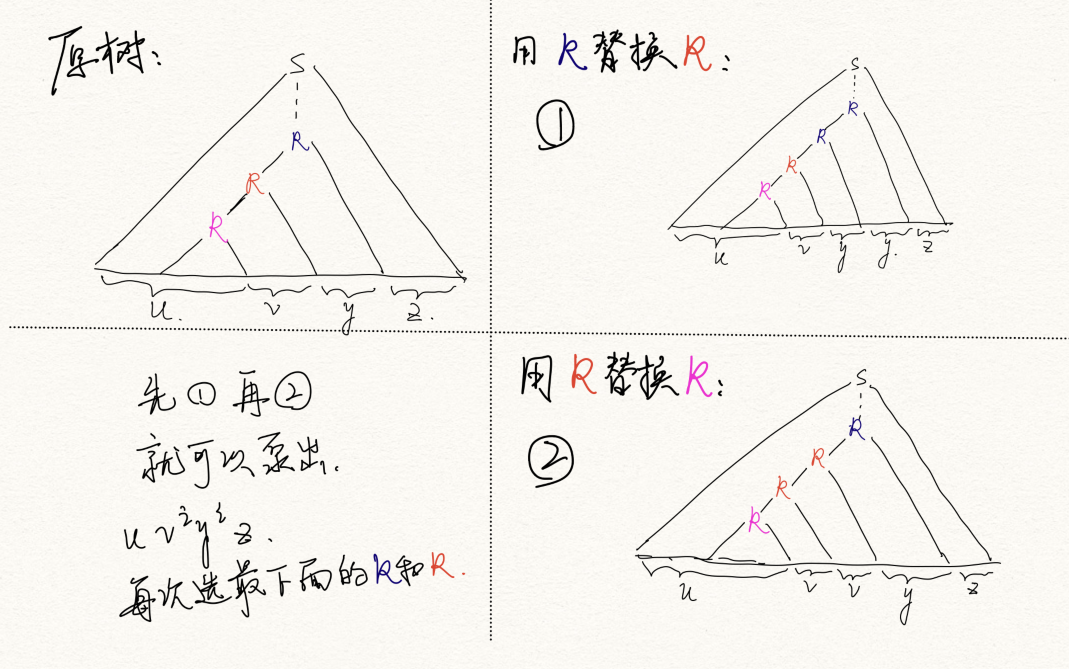 原树:
S
R
R
R
u.
v
y
z.
用R替换R:
①
S
R
R
R
R
u
v
y
y.
z
先①再②
就可以泵出.
u v²y² z.
每次选最下面的R和R.
用R替换R:
②
S
R
R
R
R
u
v
v
y
z